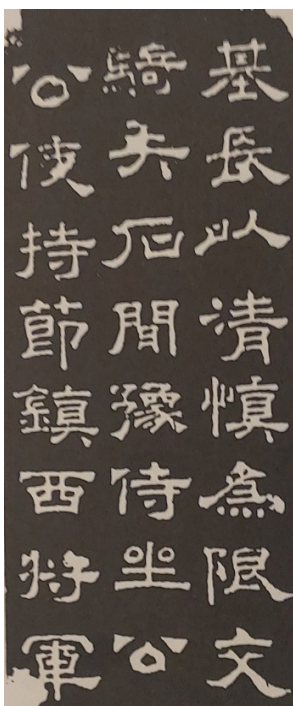 基長以清慎為限文
騎矢石間豫侍坐公
公使持節鎮西將軍